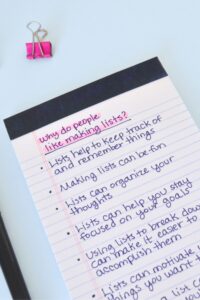 why do people
like making lists?
• Lists help to keep track of
and remember things
• Making lists can be fun
• Lists can organize your
thoughts
• Lists can help you stay
focused on your goals
• Using lists to break down
can make it easier to
accomplish them
• Lists can motivate
things you want t